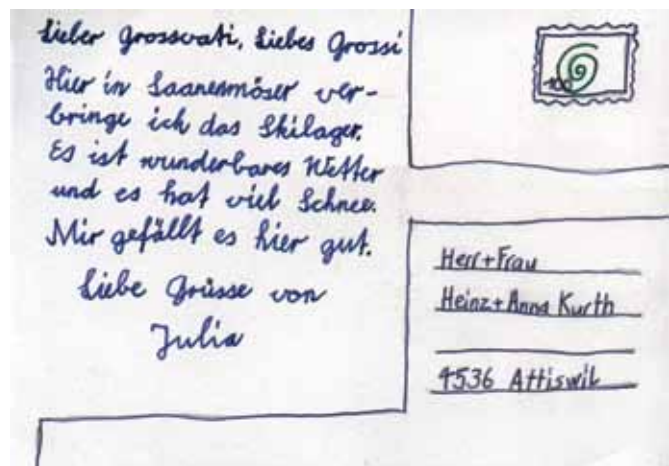 Lieber Grossvati, Liebes Grossi
Hier in Saanenmöser ver-
bringe ich das Skilager.
Es ist wunderbares Wetter
und es hat viel Schnee.
Mir gefällt es hier gut.
Liebe Grüsse von
Julia
100
Herr+Frau
Heinz+Anna Kurth
4536 Attiswil